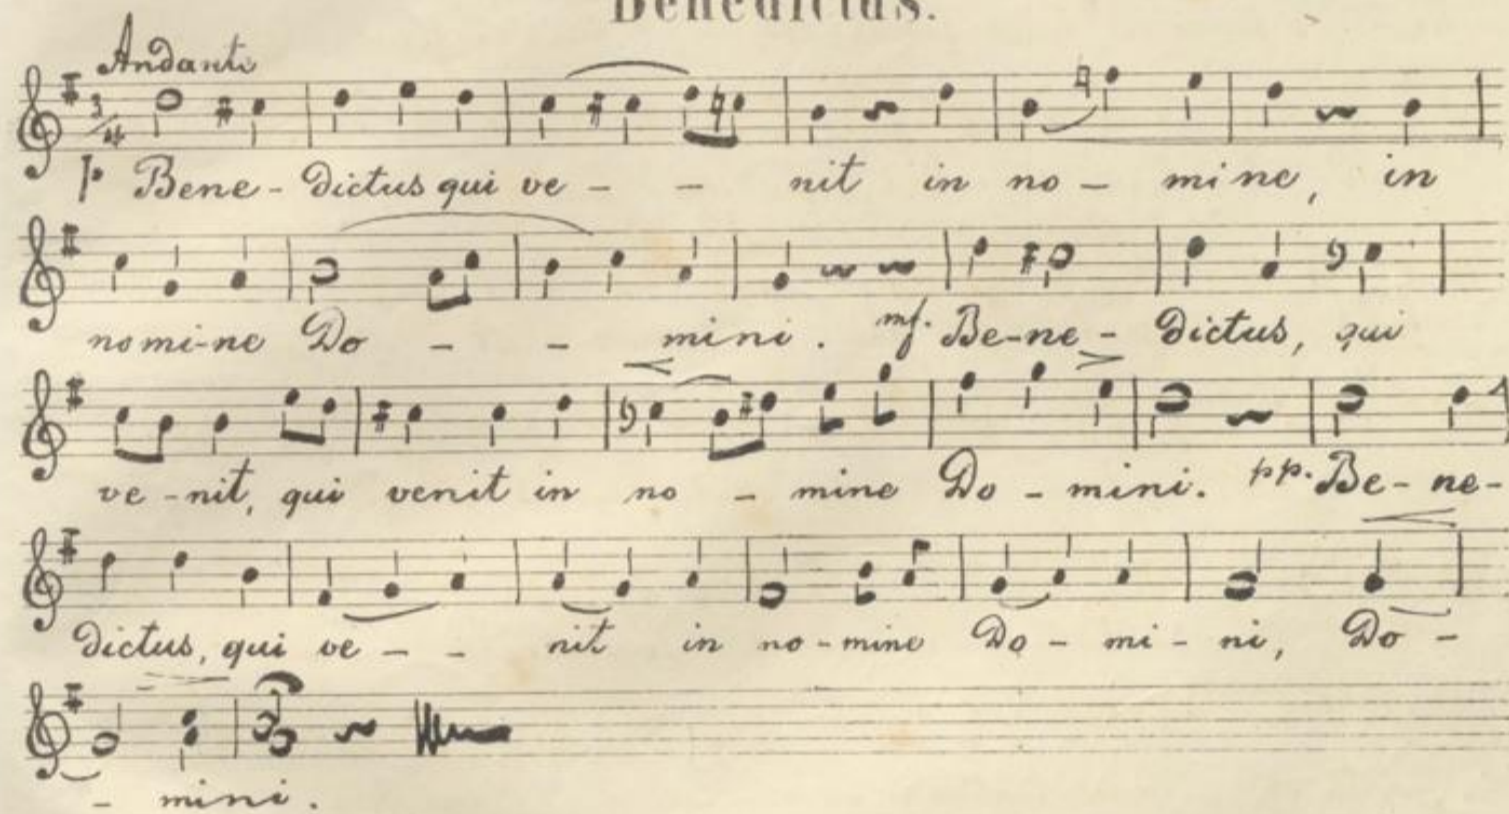 Benedictus.
Andante
3/4
p Bene - dictus qui ve - - nit in no - mine, in
nomi-ne Do - - mini. mf. Be-ne - dictus, qui
ve - nit, qui venit in no - mine Do - mini. pp. Be - ne -
dictus, qui ve - - nit in no - mine Do - mi - ni, Do -
- mini.